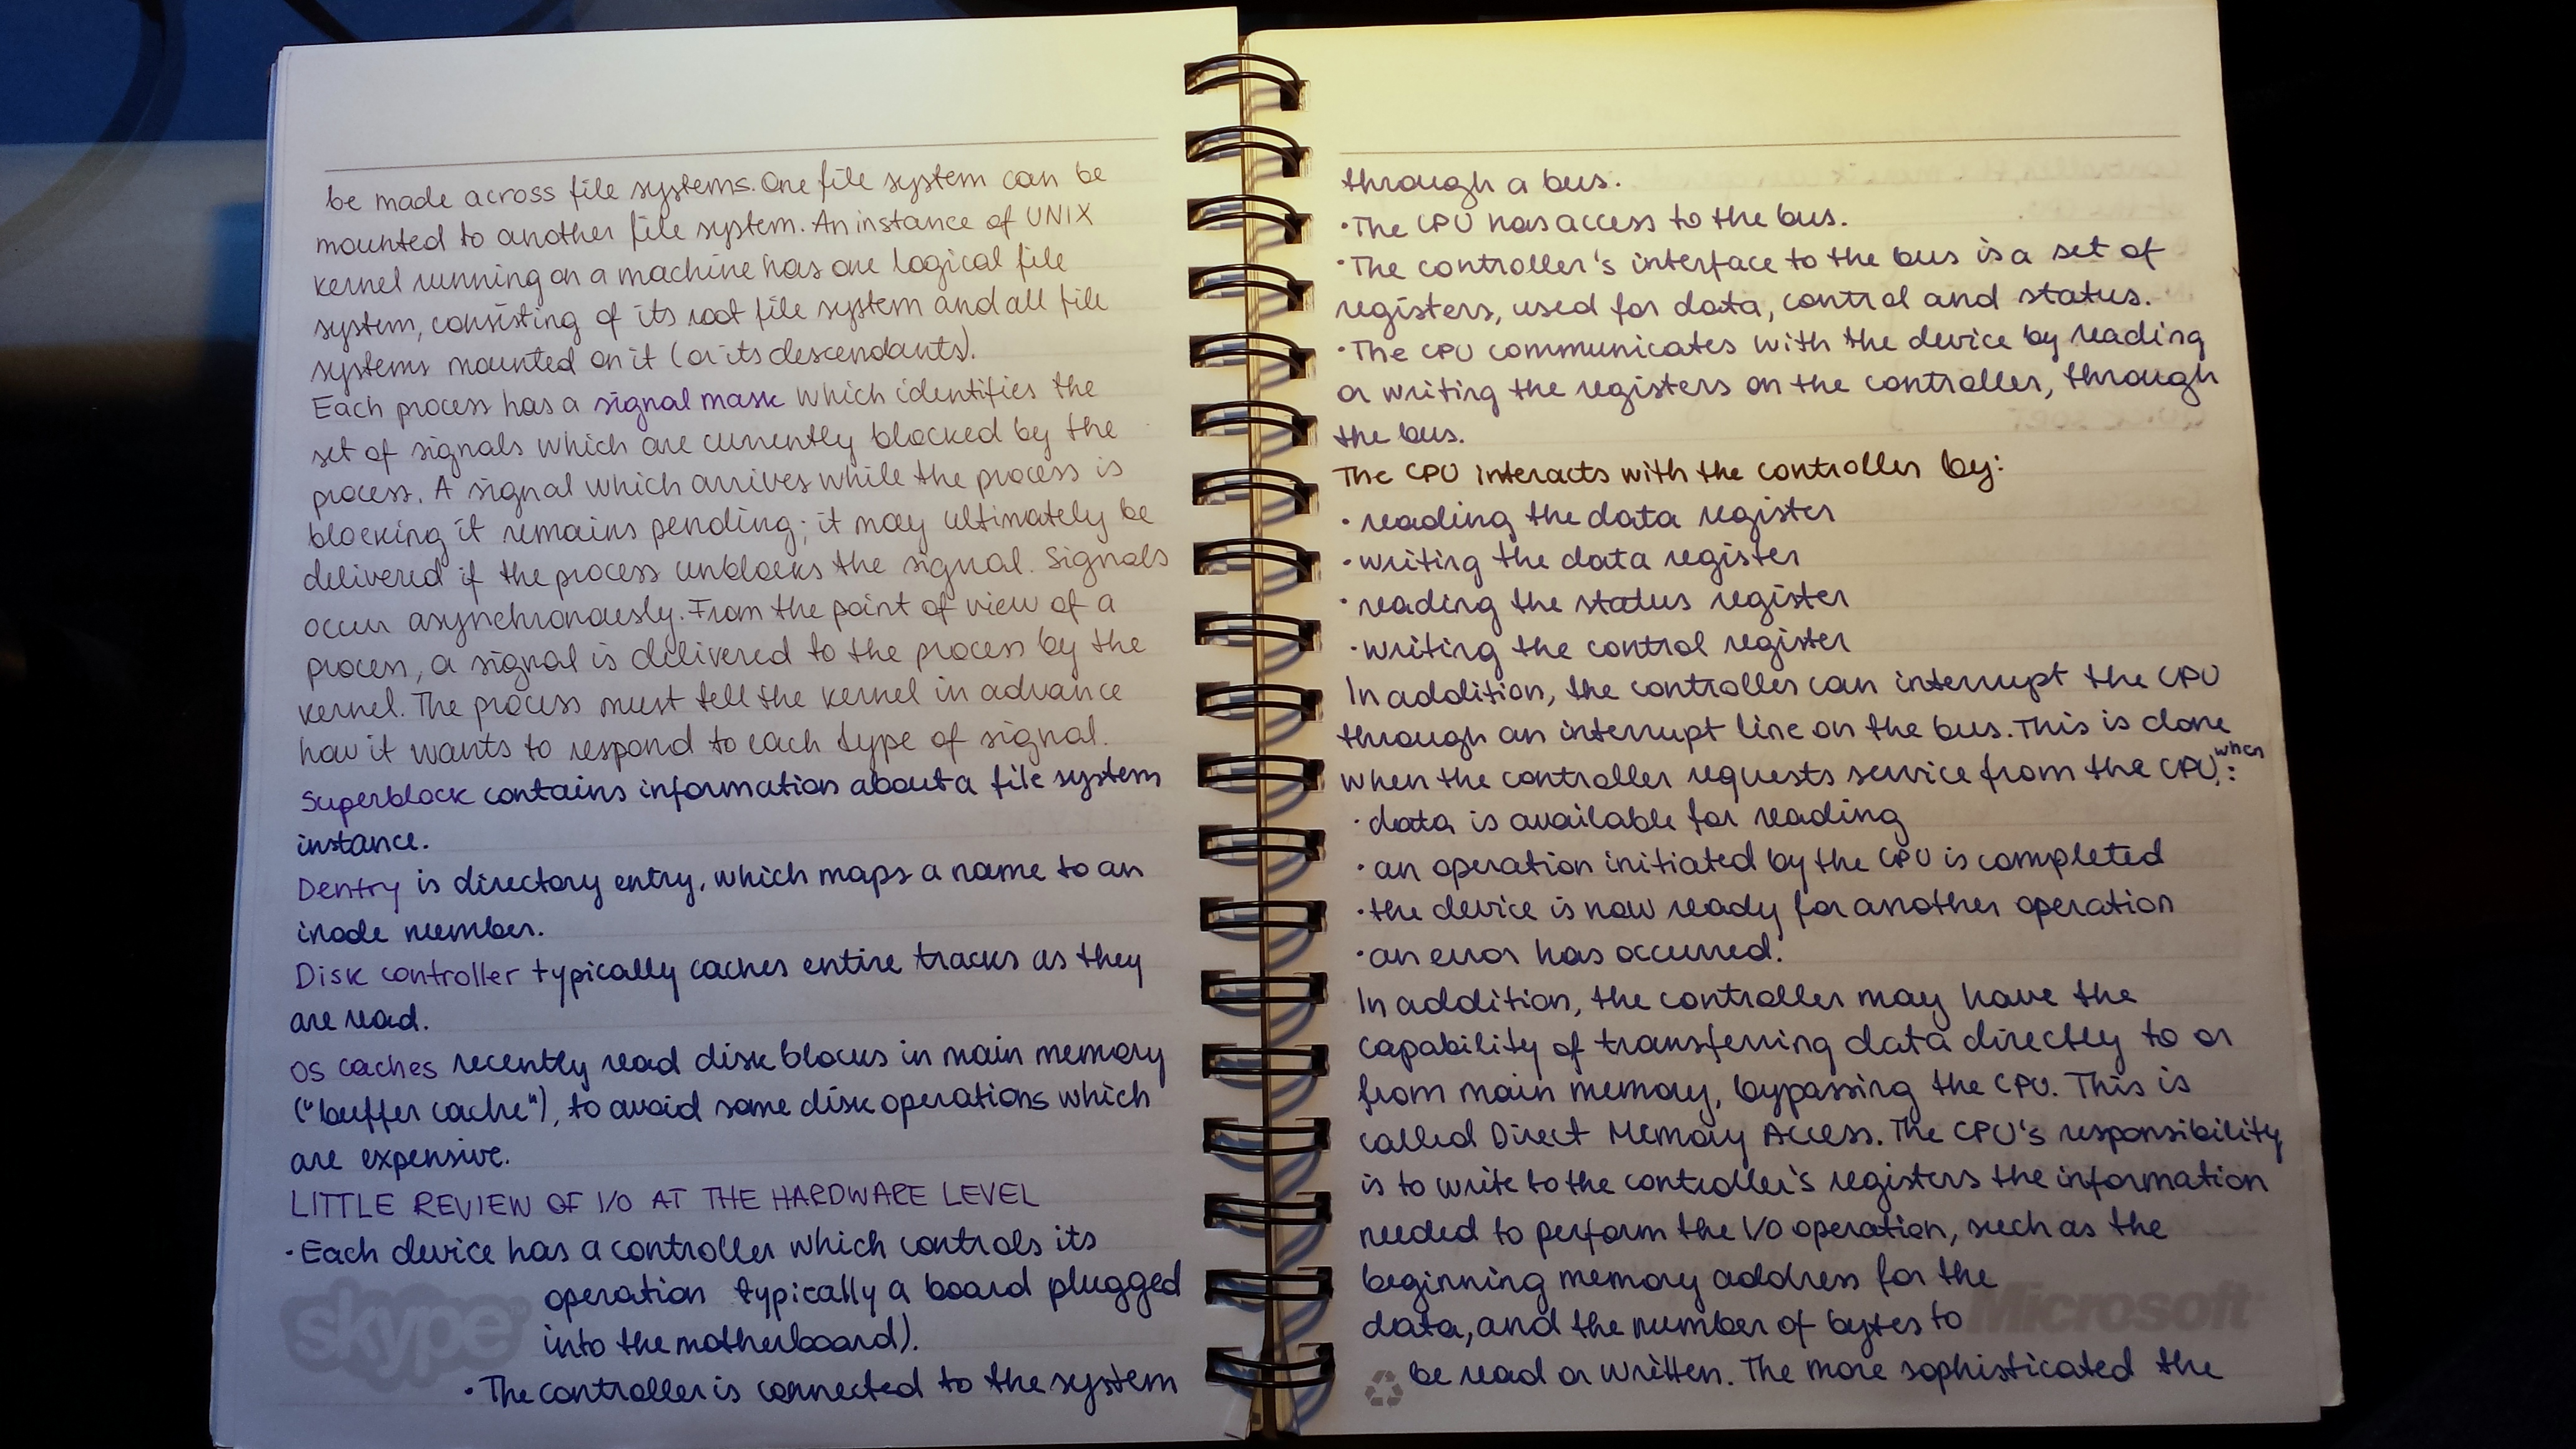 be made across file systems. One file system can be
mounted to another file system. An instance of UNIX
kernel running on a machine has one logical file
system, consisting of its root file system and all file
systems mounted on it (or its descendants).
Each process has a signal mask which identifies the
set of signals which are currently blocked by the
process. A signal which arrives while the process is
blocking it remains pending; it may ultimately be
delivered if the process unblocks the signal. Signals
occur asynchronously. From the point of view of a
process, a signal is delivered to the process by the
kernel. The process must tell the kernel in advance
how it wants to respond to each type of signal.
Superblock contains information about a file system
instance.
Dentry is directory entry, which maps a name to an
inode number.
Disk controller typically caches entire tracks as they
are read.
OS caches recently read disk blocks in main memory
("buffer cache"), to avoid some disk operations which
are expensive.
LITTLE REVIEW OF I/O AT THE HARDWARE LEVEL
• Each device has a controller which controls its
operation typically a board plugged
into the motherboard).
• The controller is connected to the system
skype
through a bus.
• The CPU has access to the bus.
• The controller's interface to the bus is a set of
registers, used for data, control and status.
• The CPU communicates with the device by reading
or writing the registers on the controller, through
the bus.
The CPU interacts with the controller by:
• reading the data register
• writing the data register
• reading the status register
• writing the control register
In addition, the controller can interrupt the CPU
through an interrupt line on the bus. This is done
when the controller requests service from the CPU, when:
• data is available for reading
• an operation initiated by the CPU is completed
• the device is now ready for another operation
• an error has occurred.
In addition, the controller may have the
capability of transferring data directly to or
from main memory, bypassing the CPU. This is
called Direct Memory Access. The CPU's responsibility
is to write to the controller's registers the information
needed to perform the I/O operation, such as the
beginning memory address for the
data, and the number of bytes to
be read or written. The more sophisticated the
Microsoft